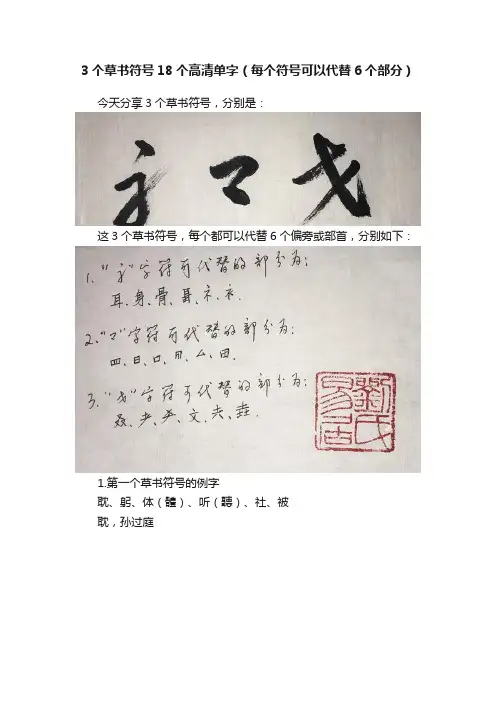 3个草书符号18个高清单字（每个符号可以代替6个部分）
今天分享3个草书符号，分别是：
这3个草书符号，每个都可以代替6个偏旁或部首，分别如下：
1、"字符可代替的部分为：
耳、身、骨、礻、衤.
2、"マ"字符可代替的部分为：
四、日、口、月、厶、田.
3、"字符可代替的部分为：
文、
劉氏
易居
1.第一个草书符号的例字
耽、躬、体（體）、听（聽）、社、被
耽，孙过庭